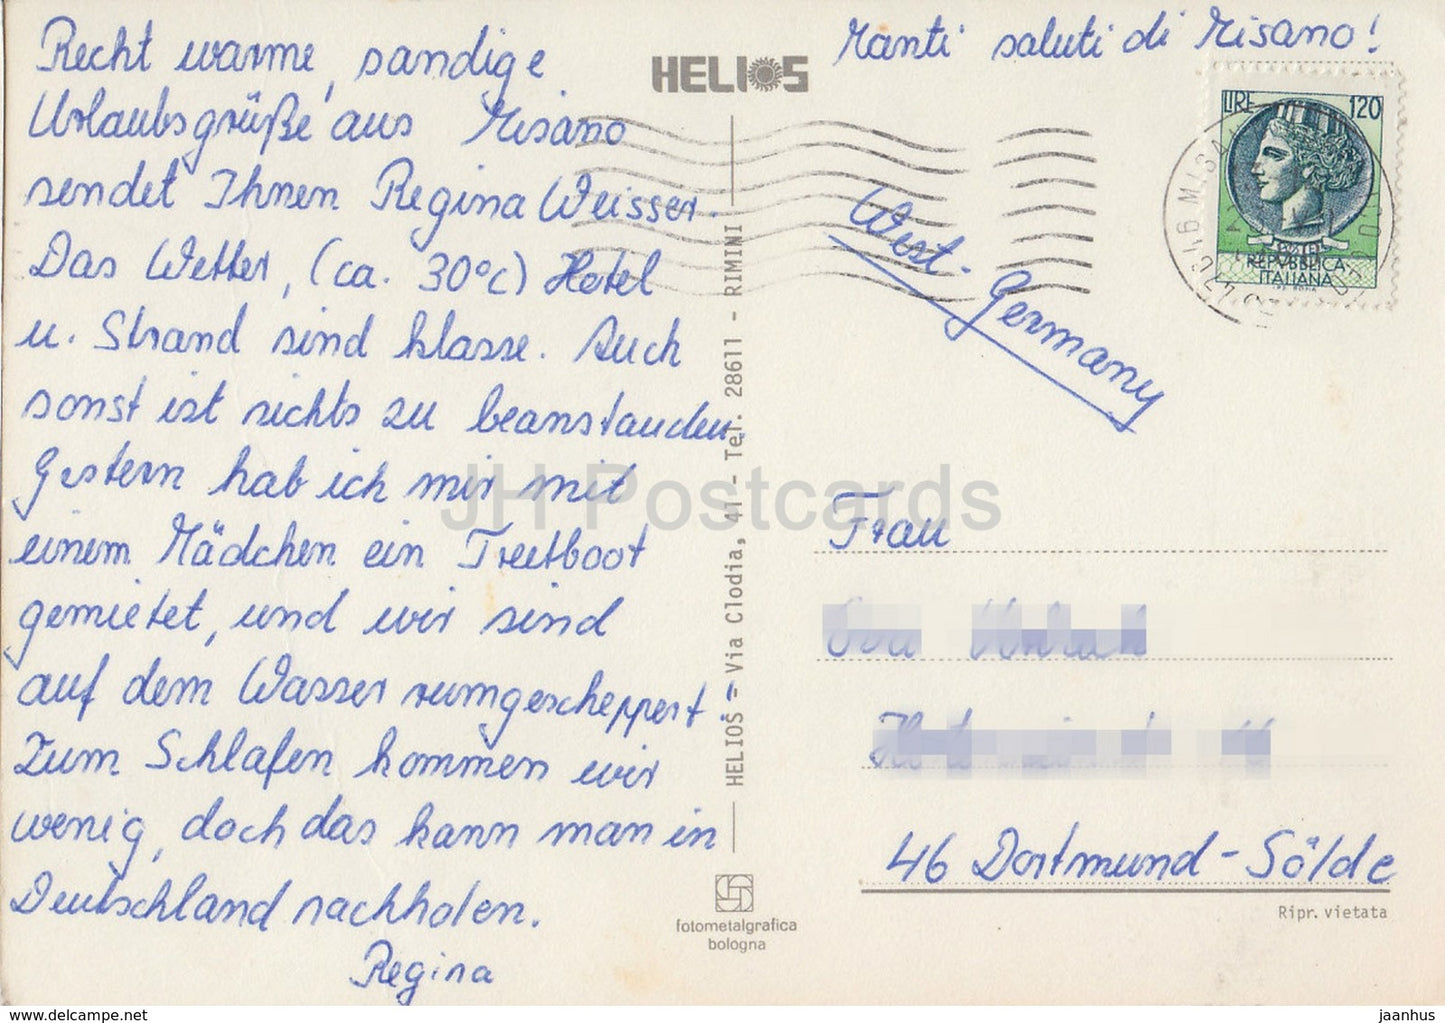 Recht warme, sandige
Urlaubsgrüße aus Misano
sendet Ihnen Regina Weisser.
Das Wetter, (ca. 30°C) Hotel
u. Strand sind klasse. Auch
sonst ist nichts zu beanstanden.
Gestern hab ich mir mit
einem Mädchen ein Tretboot
gemietet, und wir sind
auf dem Wasser rumgescheppert!
Zum Schlafen kommen wir
wenig, doch das kann man in
Deutschland nachholen.
Regina
HELIOS
HELIOS - Via Clodia, 41 - Tel. 28611 - RIMINI
fotometalgrafica
bologna
Manti saluti di Misano!
LIRE 120
REPUBBLICA
ITALIANA
West-Germany
Frau
46 Dortmund-Sölde
Ripr. vietata
JH Postcards
www.delcampe.net
jaanhus